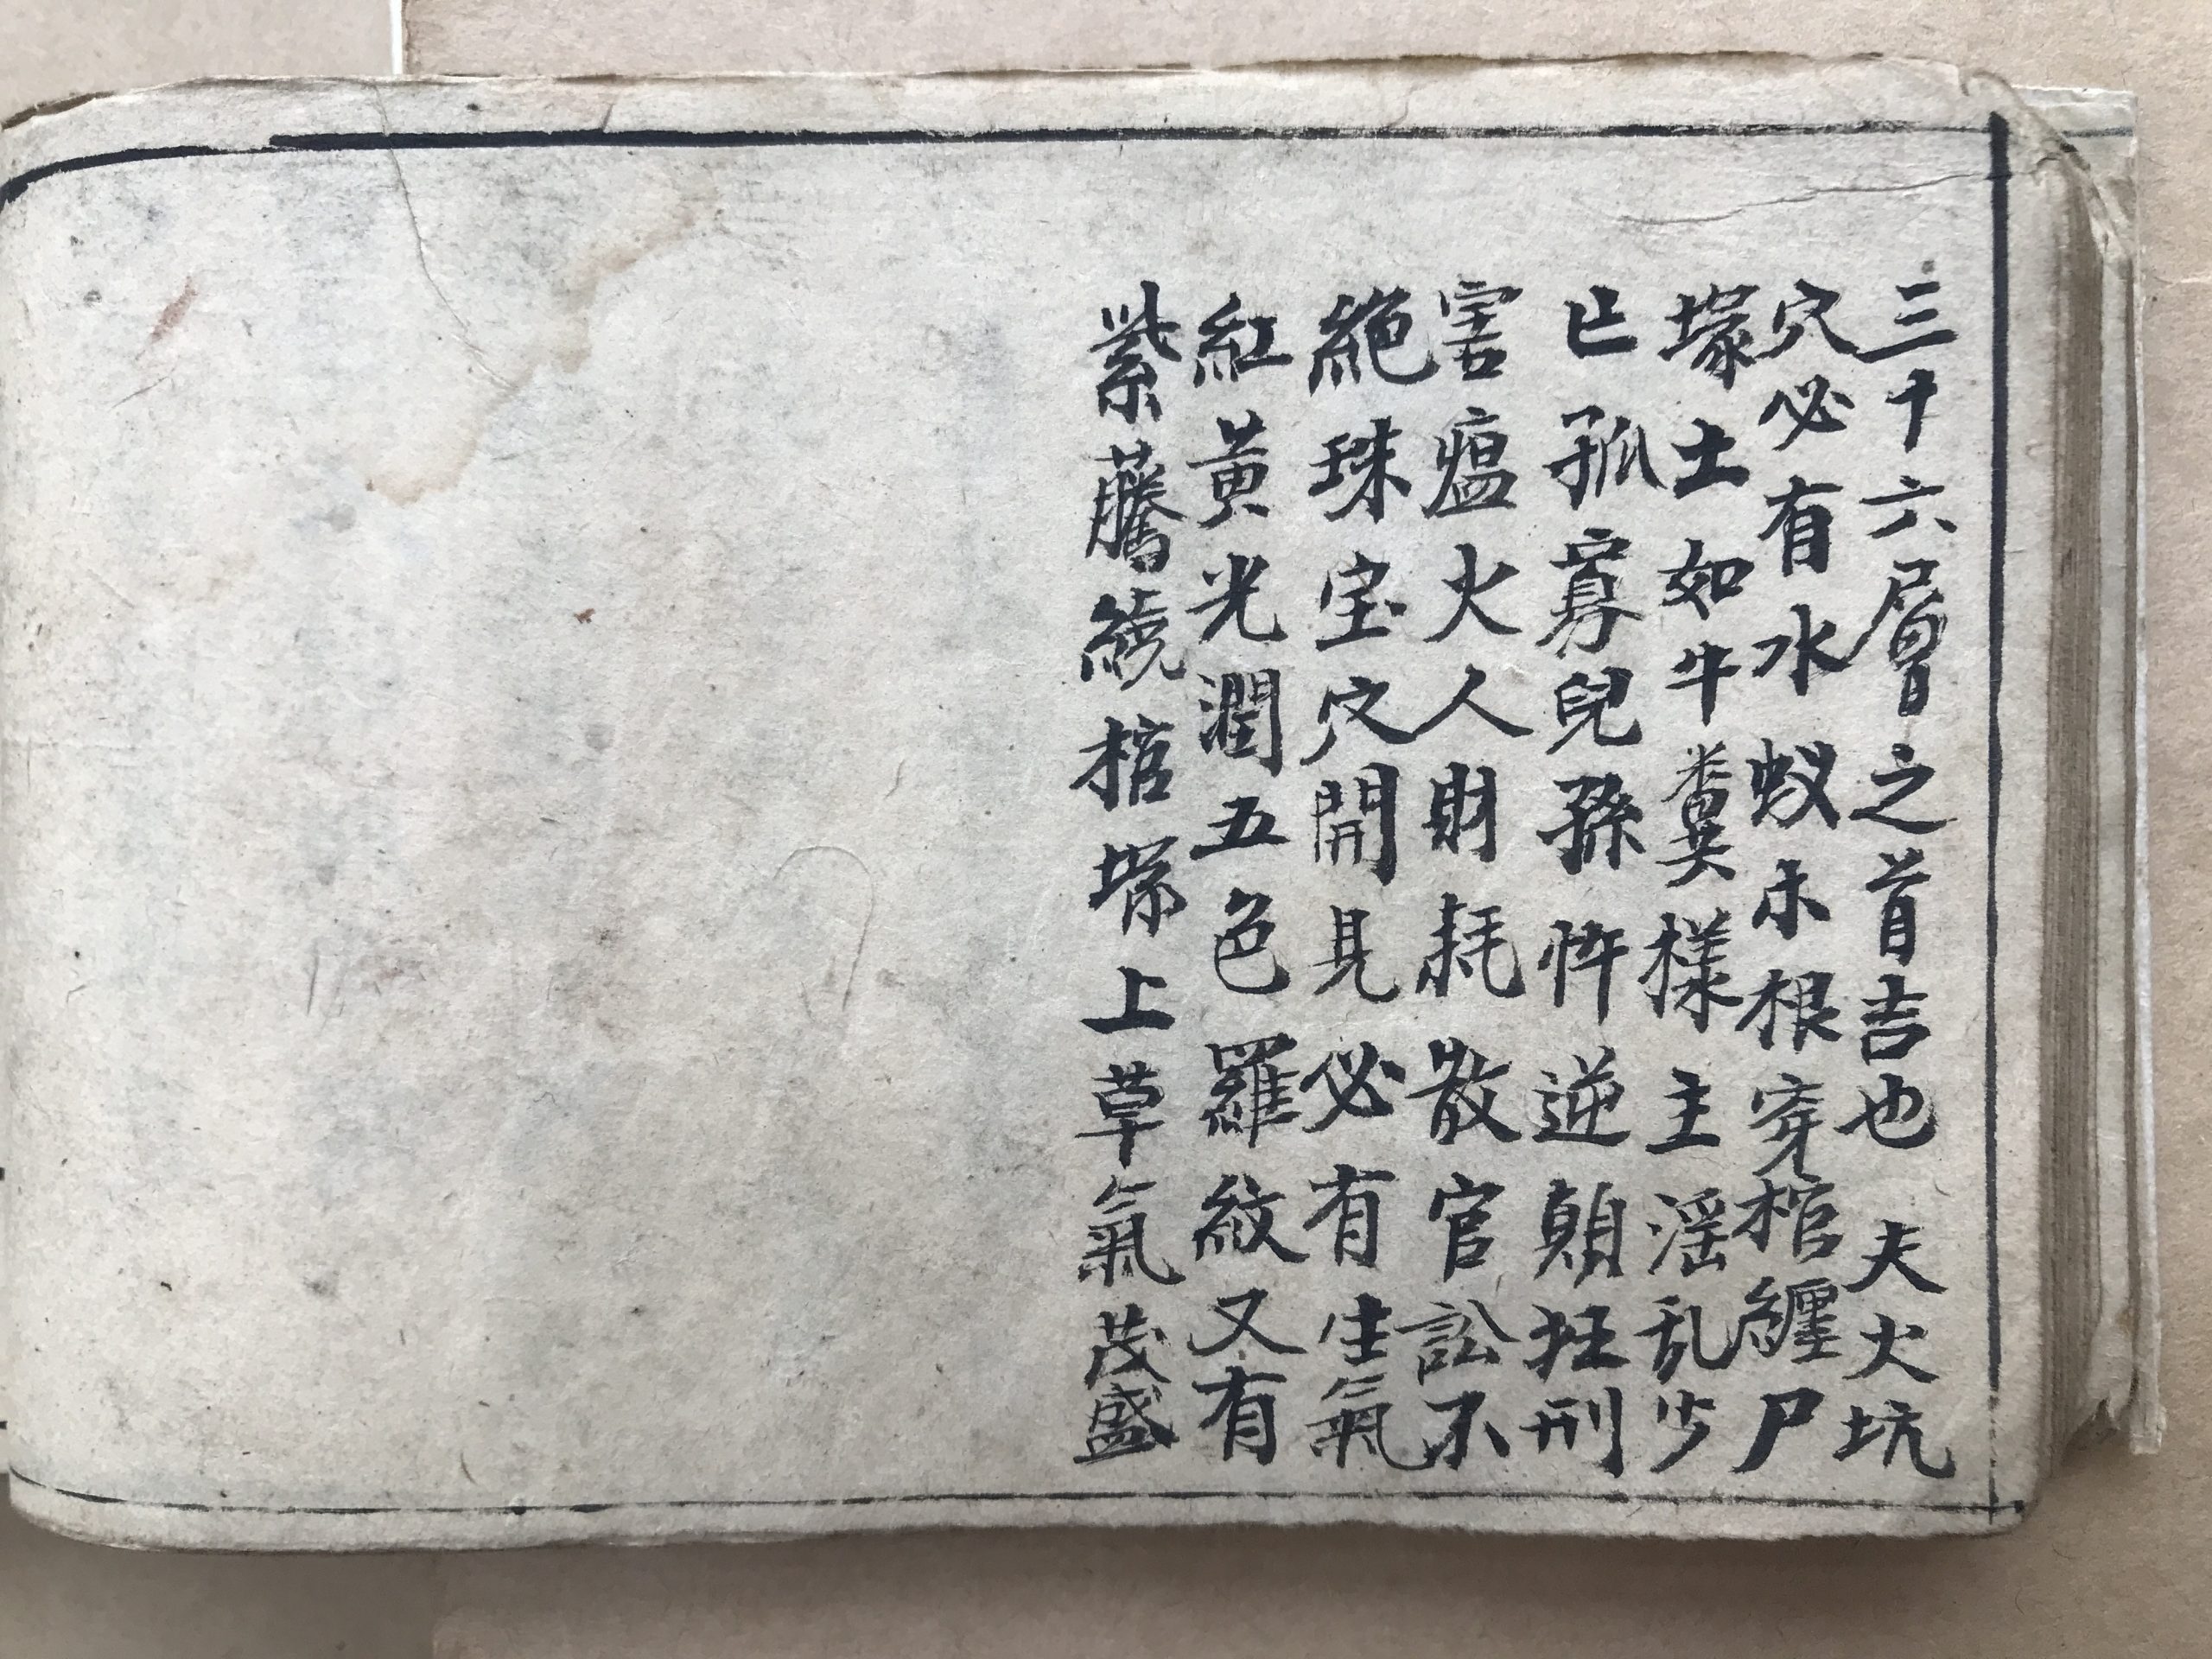 三十六層之首吉也 夫火坑
穴必有水蚁木根穿棺纏尸
塚土如牛糞樣主淫乱少
亡孤寡兒孫忤逆顛狂刑
害瘟火人財耗散官訟不
絕珠宝穴開見必有生氣
紅黃光潤五色羅紋又有
紫藤繞棺塚上草氣茂盛